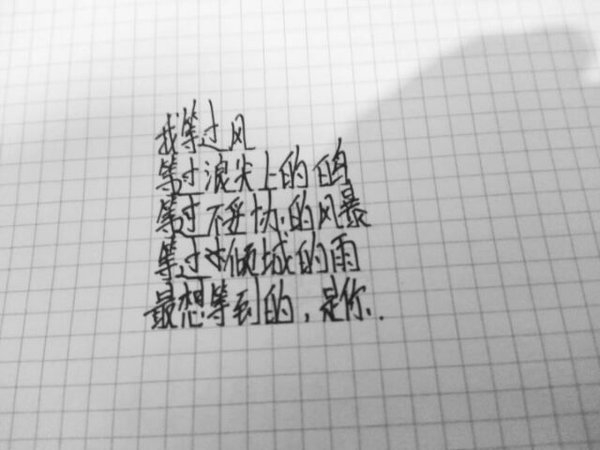 我等过风
等过浪尖上的
等过不妥协的风暴
等过倾城的雨
最想等到的，是你．